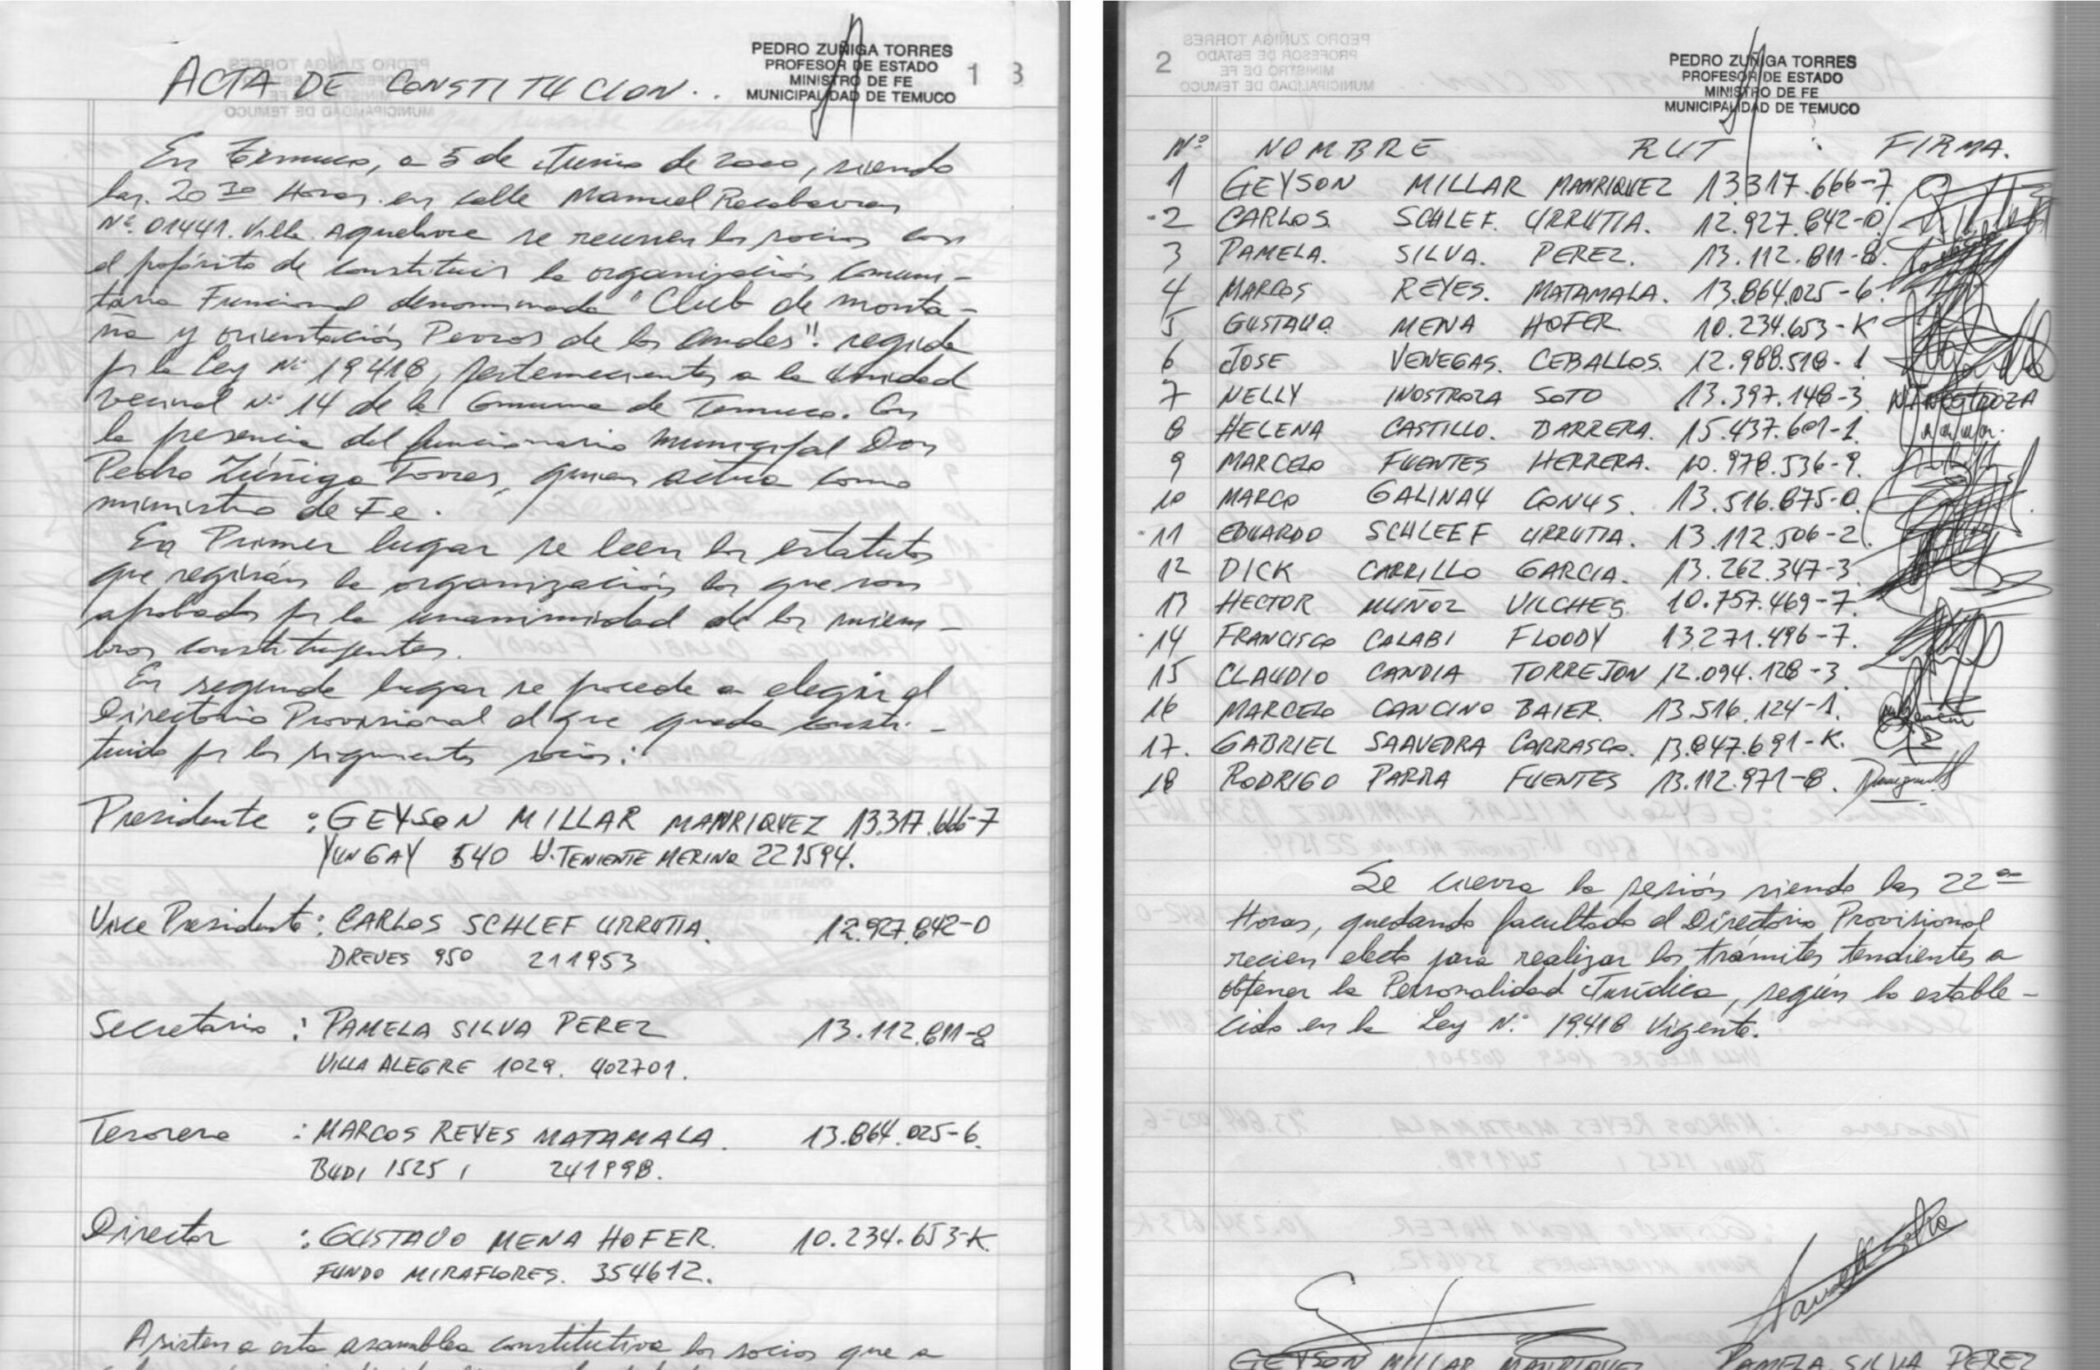 ACTA DE CONSTITUCION..
PEDRO ZUÑIGA TORRES
PROFESOR DE ESTADO
MINISTRO DE FE
MUNICIPALIDAD DE TEMUCO
1 3
En Temuco, a 5 de Junio de 2000, siendo
las 20 30 Horas en calle Manuel Recabarren
Nº 01441. Villa se reunen los socios con
el propósito de constituir la organización comuni-
taria Funcional denominada "Club de monta-
ña y orientación Perros de los Andes". regida
por la Ley Nº 19418, pertenecientes a la unidad
vecinal Nº 14 de la Comuna de Temuco. Con
la presencia del funcionario municipal Don
Pedro Zúñiga Torres, quien actúa como
ministro de Fe.
En Primer lugar se leen los estatutos
que regirán la organización los que son
aprobados por la unanimidad de los miem-
bros constituyentes.
En segundo lugar se procede a elegir el
Directorio Provisional el que queda consti-
tuido por los siguientes socios:
Presidente : GEYSON MILLAR MANRIQUEZ 13.317.666-7
YUNGAY 540 V. TENIENTE MERINO 221594.
Vice Presidente : CARLOS SCHLEF URRUTIA. 12.927.842-0
DREVES 950 211953
Secretario : PAMELA SILVA PEREZ 13.112.811-8
VILLA ALEGRE 1029. 402701.
Tesorero : MARCOS REYES MATAMALA. 13.864.025-6.
BUDI 1525 , 241998.
Director : GUSTAVO MENA HOFER. 10.234.653-K
FUNDO MIRAFLORES. 354612.
Asisten a esta asamblea constitutiva los socios que a
2
PEDRO ZUÑIGA TORRES
PROFESOR DE ESTADO
MINISTRO DE FE
MUNICIPALIDAD DE TEMUCO
Nº NOMBRE RUT : FIRMA.
1 GEYSON MILLAR MANRIQUEZ 13.317.666-7
2 CARLOS. SCHLEF. URRUTIA. 12.927.842-0
3 PAMELA. SILVA. PEREZ. 13.112.811-8.
4 MARCOS REYES. MATAMALA. 13.864.025-6.
5 GUSTAVO. MENA HOFER. 10.234.653-K
6 JOSE VENEGAS. CEBALLOS. 12.988.518-1
7 NELLY INOSTROZA SOTO 13.397.148-3 N INOSTROZA
8 HELENA CASTILLO. BARRERA. 15.437.601-1.
9 MARCELO FUENTES HERRERA. 10.978.536-9.
10 MARCO GALINAY CONUS. 13.516.875-0
11 EDUARDO SCHLEEF URRUTIA. 13.112.506-2
12 DICK CARRILLO GARCIA. 13.262.347-3
13 HECTOR MUÑOZ VILCHES. 10.757.469-7.
14 FRANCISCO CALABI FLOODY 13.271.496-7.
15 CLAUDIO CANDIA TORREJON 12.094.128-3.
16 MARCELO CANCINO BAIER. 13.516.124-1.
17. GABRIEL SAAVEDRA CARRASCO. 13.847.691-K.
18 RODRIGO PARRA FUENTES 13.112.971-8.
Se cierra la sesión siendo las 22 00
Horas, quedando facultado el Directorio Provisional
recien electo para realizar los trámites tendientes a
obtener la Personalidad Jurídica, según lo estable-
cido en la Ley Nº 19.418 Vigente.
GEYSON MILLAR MANRIQUEZ PAMELA SILVA PEREZ